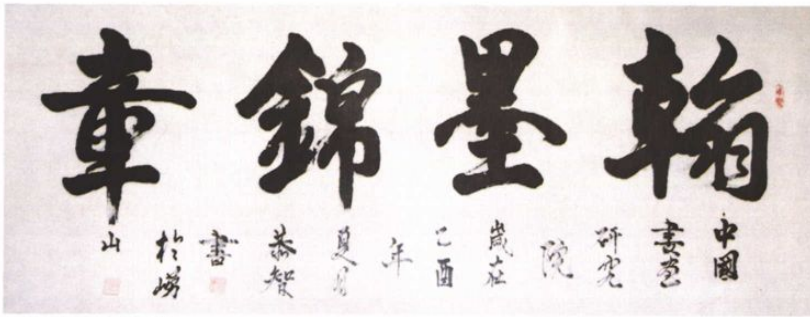 翰墨錦章
中國
書画
研究
院
歲在
乙酉
年
夏月
恭智
書
於嶗
山